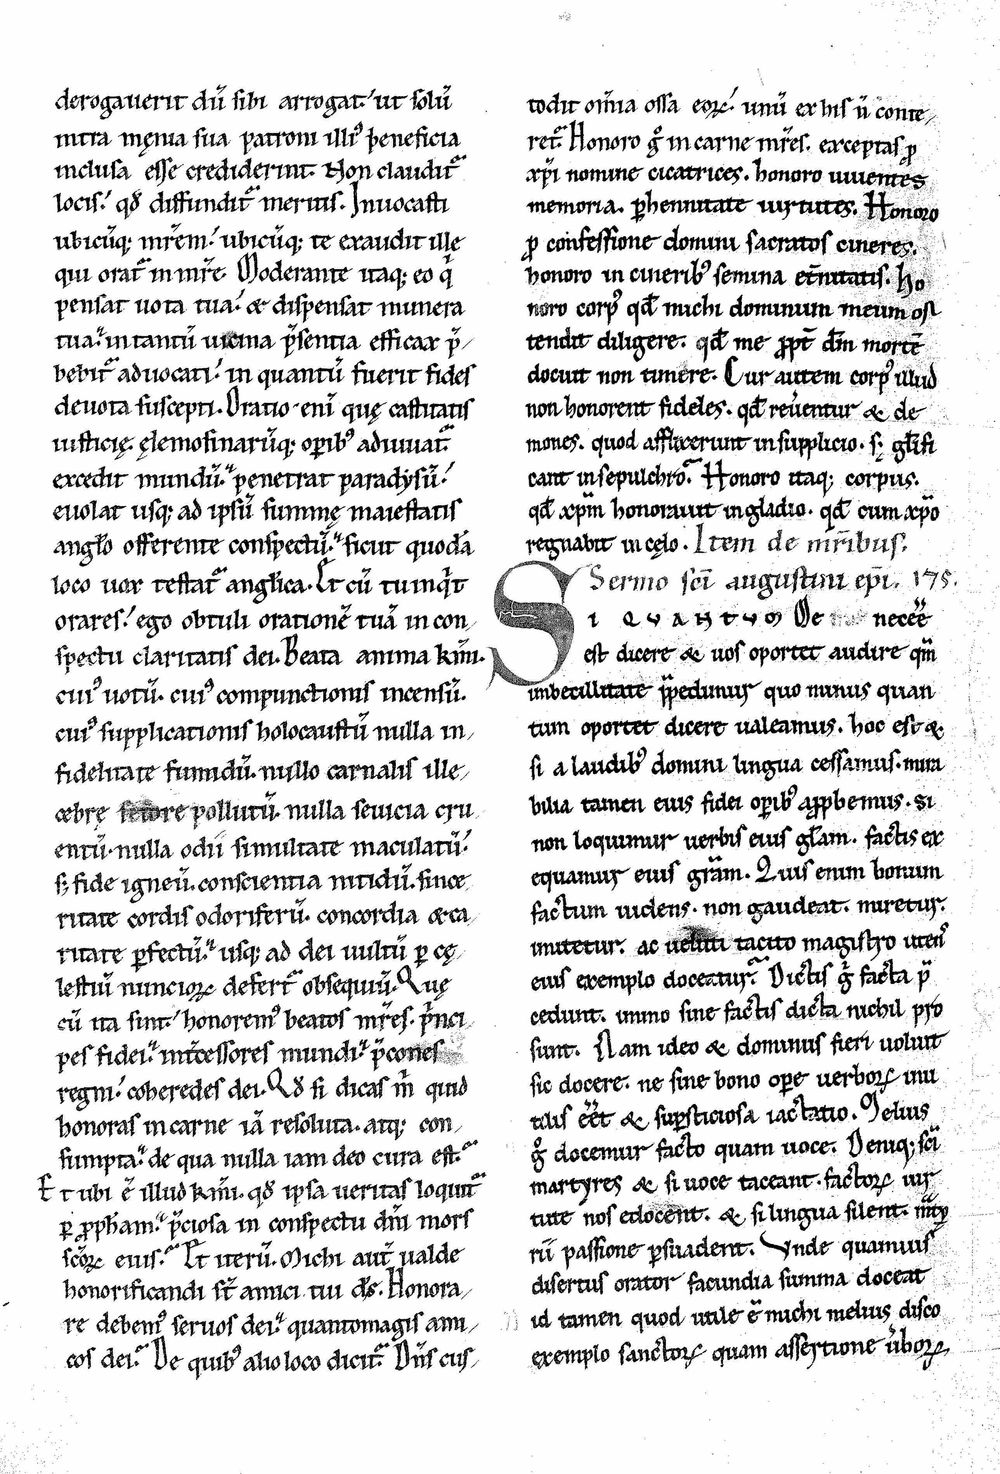 derogauerit dū sibi arrogat.' ut solū
intra męnia sua patroni illiꝰ beneficia
inclusa esse crediderint. Non claudit᷑
locis.' qd̄ diffundit᷑ meritis. Inuocasti
ubicūq; mr̄em.' ubicūq; te exaudit ille
qui orat᷑ in mr̄e. Moderante itaq; eo q̄
pensat uota tua.' & dispensat munera
tua.' in tantū uicina p̄sentia efficax p̄-
bebit᷑ aduocati.' in quantū fuerit fides
deuota suscepti. Oratio enī quę castitatis
iusticię. ęlemosinarūq; opibꝰ adiuuat᷑.
excedit mundū.' penetrat paradysū.'
euolat usq; ad ipsū summę maiestatis
anglo offerente conspectū.' sicut quodā
loco uox testat᷑ anglica. Et cū tu inqt
orares.' ego obtuli orationē tuā in con-
spectu claritatis dei. Beata anima kr̄mi.
cuiꝰ uotū. cuiꝰ compunctionis incensū.
cuiꝰ supplicationis holocaustū nulla in-
fidelitate fumidū. nullo carnalis ille-
cebrę fetore pollutū. nulla seuicia cru-
entū. nulla odii simultate maculatū.'
s; fide igneū. conscientia nitidū. since-
ritate cordis odoriferū. concordia & ca-
ritate pfectū.' usq; ad dei uultū p cę-
lestiū nunciorꝝ defert᷑ obsequiū. Quę
cū ita sint.' honoremꝰ beatos mr̄es. p̄nci-
pes fidei.' int̄cessores mundi.' p̄cones
regni.' coheredes dei. Qd̄ si dicas m̄ quid
honoras in carne iā resoluta. atq; con-
sumpta.' de qua nulla iam deo cura est.
Et ubi ē illud kr̄mi. qd̄ ipsa ueritas loquit᷑
p ppham.' p̄ciosa in conspectu dn̄i mors
scōrꝝ eius. Et iterū. Michi aut̄ ualde
honorificandi st̄ amici tui ds̄. Honora-
re debemꝰ seruos dei.' quantomagis ami-
cos dei. De quibꝰ alio loco dicit᷑. Dn̄s cus-
todit om̄ia ossa eorꝝ.' unū ex his n̄ conte-
ret᷑. Honoro g̊ in carne mr̄es. exceptas p
xp̄i nomine cicatrices. honoro uiuentes
memoria. phennitate uirtutes. Honoro
p confessione domini sacratos cineres.
honoro in cineribꝰ semina et̄nitatis. Ho
noro corpꝰ qd̄ michi dominum meum os
tendit diligere. qd̄ me ppt̄ dn̄m mortē
docuit non timere. Cur autem corpꝰ illud
non honorent fideles. qd̄ reuerentur & de
mones. quod afflixerunt in supplicio. s; gl̄ifi
cant in sepulchro. Honoro itaq; corpus.
qd̄ xp̄m honorauit in gladio. qd̄ cum xp̄o
regnabit in cęlo. Item de mr̄ibus.
Sermo sc̄i augustini ep̄i. 175.
SI QUANTUM De necēe
est dicere & uos oportet audire qm̄
imbecillitate p̄pedimur quo minus quan
tum oportet dicere ualeamus. hoc est &
si a laudibꝰ domini lingua cessamus. mira
bilia tamen eius fidei opibꝰ appbemus. Si
non loquimur uerbis eius gl̄am. factis ex
equamur eius gr̄am. Quis enim bonum
factum uidens. non gaudeat. miretur.
imitetur. ac ueluti tacito magistro
eius exemplo doceatur. Dictis g̊ facta p̄
cedunt. immo sine factis dicta nichil pro
sunt. Nam ideo & dominus fieri uoluit
sic docere. ne sine bono ope uerborꝝ inu
tilis eēt & supsticiosa iactatio. Melius
g̊ docemur facto quam uoce. Deniq; sc̄i
martyres & si uoce taceant. factorꝝ uir
tute nos edocent. & si lingua silent. mr̄ty
rū passione psuadent. Vnde quamuis
disertus orator facundia summa doceat
id tamen quod utile ē michi melius disco
exemplo sanctorꝝ quam assertione uborꝝ,